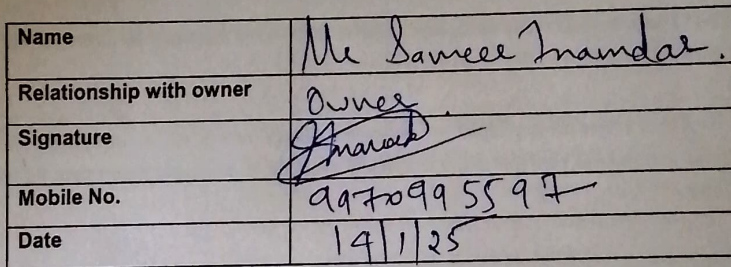 Name Mr Sameer Inamdar.
Relationship with owner Owner.
Signature
Mobile No. 9970995597
Date 14/1/25